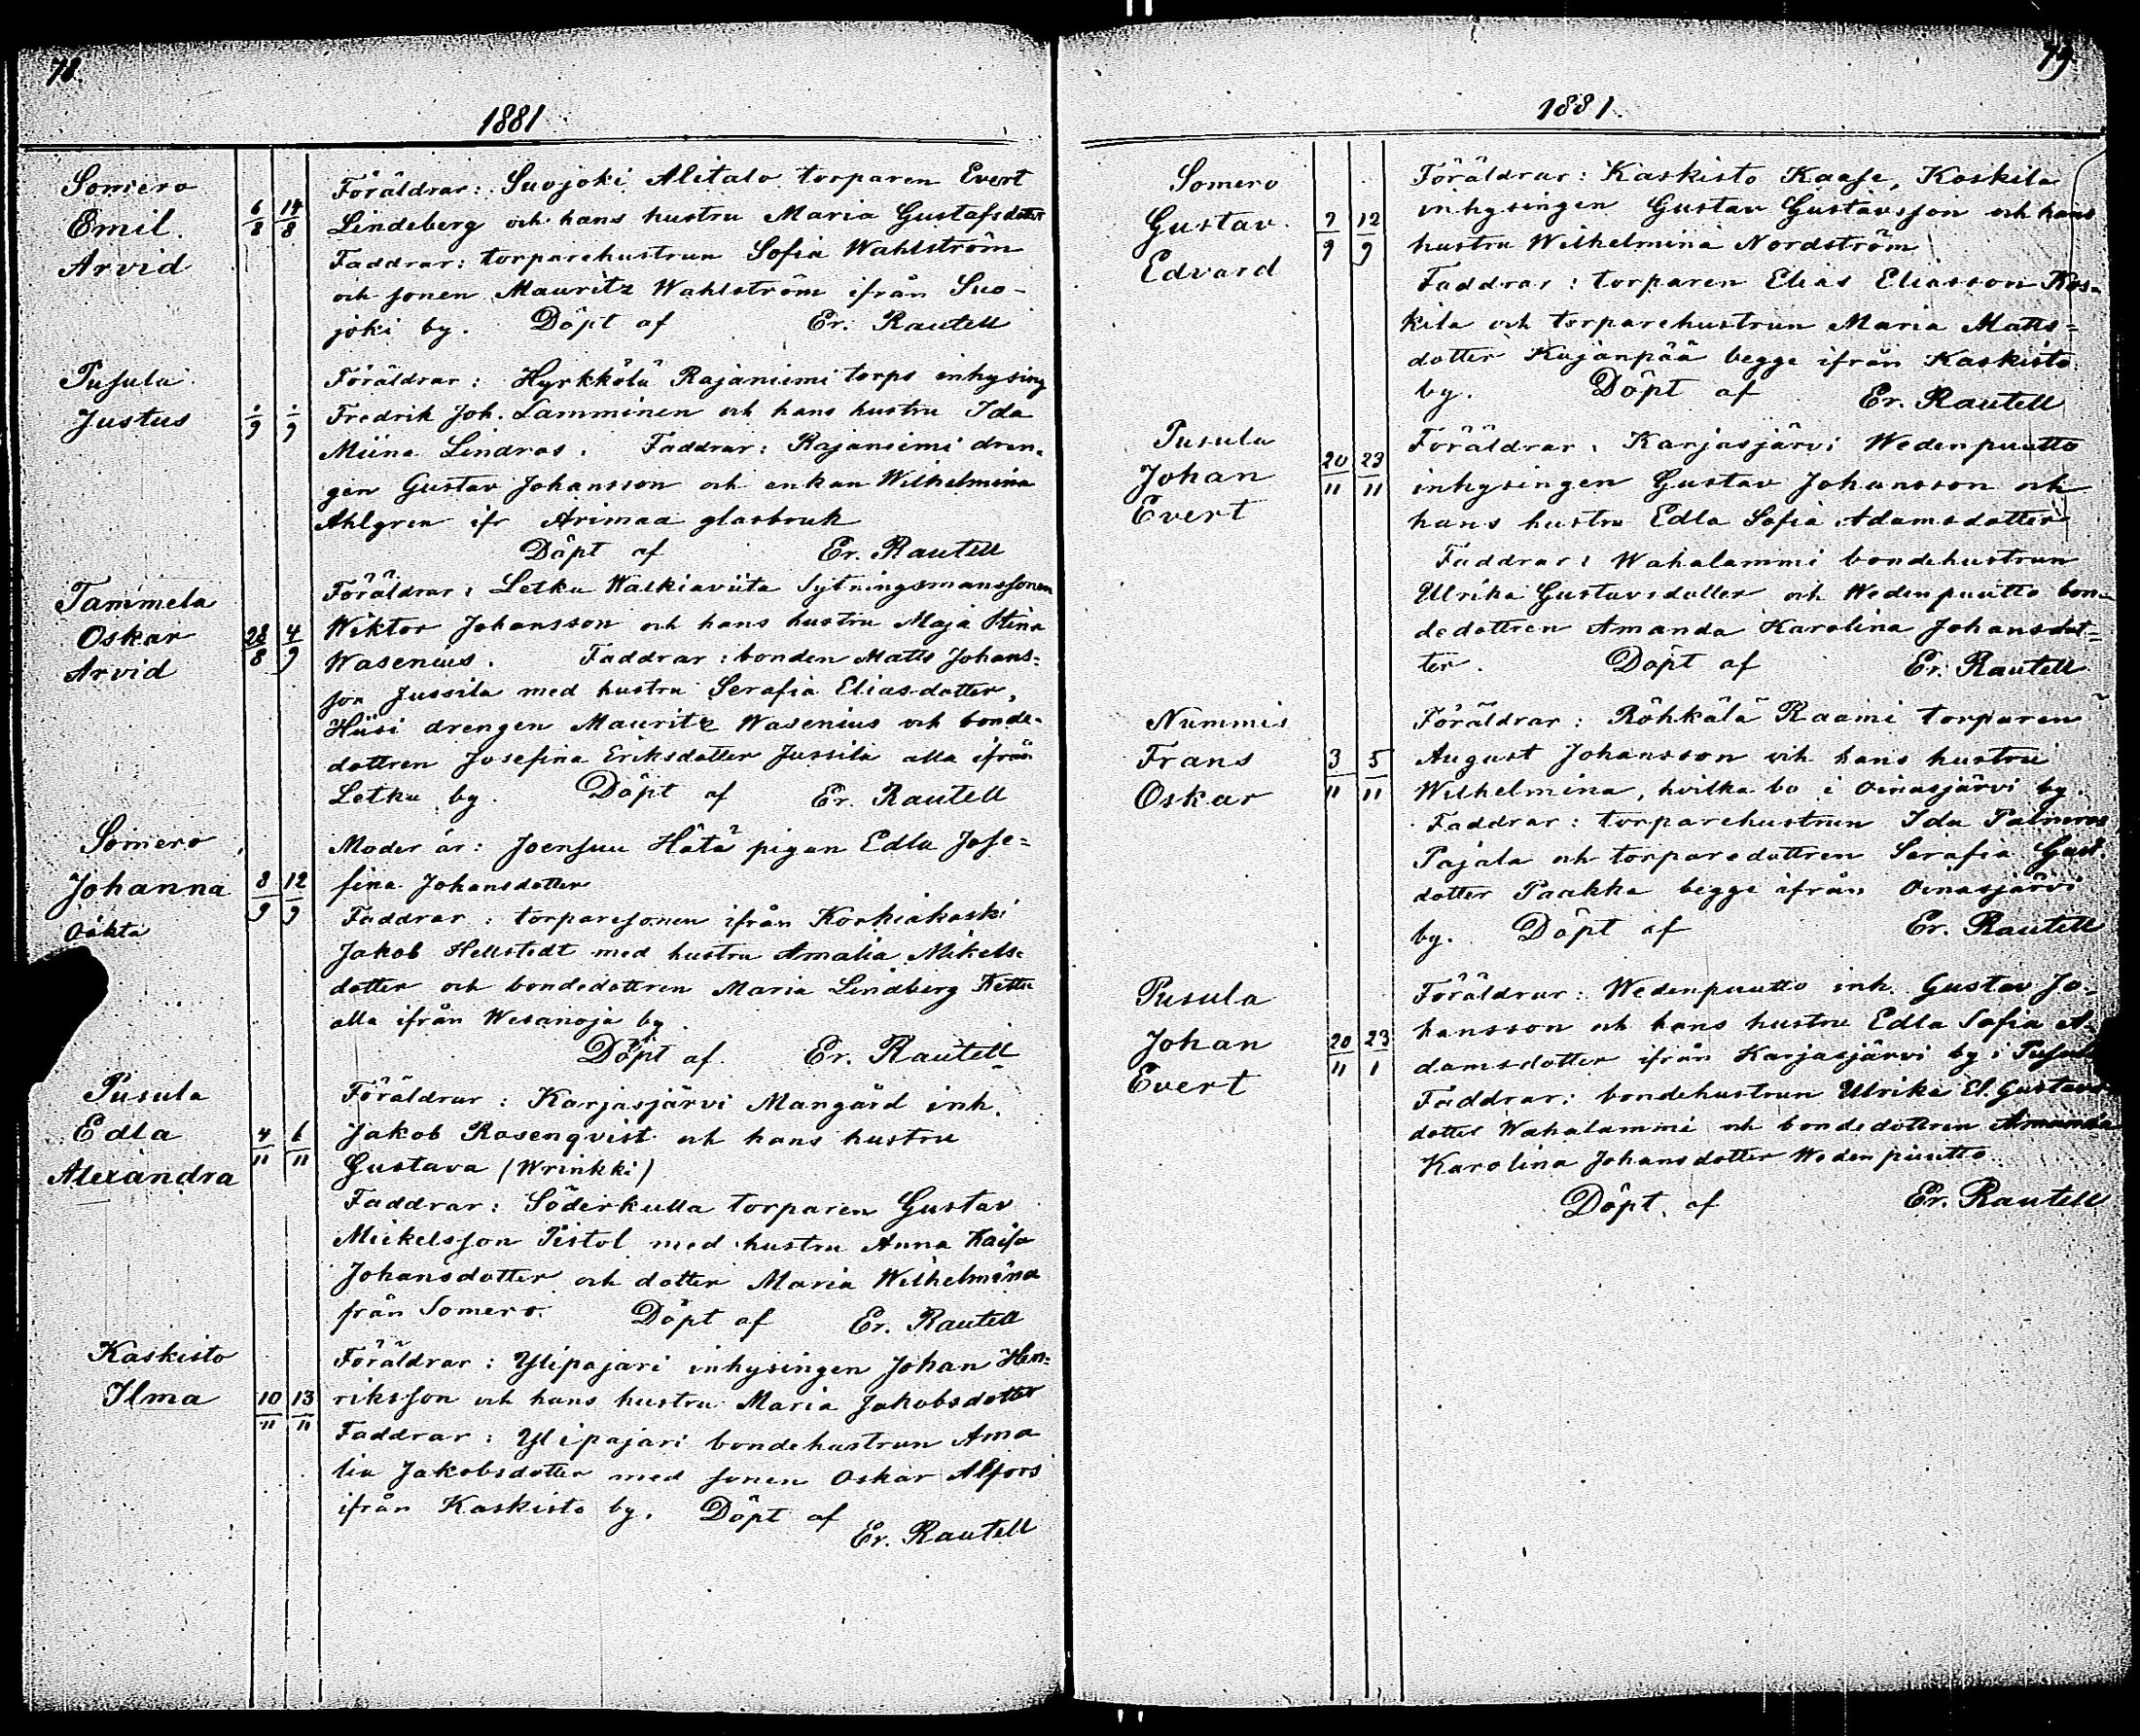 78.
1881
Somero
Emil.
Arvid
6/8 14/8
Föräldrar: Suojoki Alitalo torparen Evert
Lindeberg och hans hustru Maria Gustafsdotter
Faddrar: torparehustrun Sofia Wahlström
och sonen Mauritz Wahlström ifrån Suo-
joki by. Döpt af Er. Rautell
Pusula
Justus
./9 ./9
Föräldrar: Hyrkkölä Rajaniemi torps inhysing
Fredrik Joh. Lamminen och hans hustru Ida
Miina Lindros. Faddrar: Rajaniemi dren-
gen Gustav Johansson och enkan Wilhelmina
Ahlgren ifr Arimaa glasbruk
Döpt af Er. Rautell
Tammela
Oskar
Arvid
28/8 4/9
Föräldrar: Letku Walkiaviita Sytningsmanssonen
Wiktor Johansson och hans hustru Maja Stina
Wasenius. Faddrar: bonden Matts Johans-
son Jussila med hustru Serafia Eliasdotter,
Hiisi drengen Mauritz Wasenius och bonde-
dottren Josefina Eriksdotter Jussila alla ifrån
Letku by. Döpt af Er. Rautell
Somero
Johanna
Oäkta
8/9 12/9
Moder är: Joensuu Hätä pigan Edla Jose-
fina Johansdotter
Faddrar: torparesonen ifrån Korhiakoski
Jakob Hellstedt med hustru Amalia Mikels-
dotter och bondedottren Maria Lindberg Kettu
alla ifrån Wesanoja by.
Döpt af Er. Rautell
Pusula
Edla
Alexandra
4/11 6/11
Föräldrar: Karjasjärvi Mangård inh.
Jakob Rosenqvist och hans hustru
Gustava (Wrinkki)
Faddrar: Söderkulla torparen Gustav
Mickelsson Pistol med hustru Anna Kaisa
Johansdotter och dotter Maria Wilhelmina
från Somero. Döpt af Er. Rautell
Kaskisto
Ilma
10/11 13/11
Föräldrar: Ylipajari inhysingen Johan Hen-
riksson och hans hustru Maria Jakobsdotter
Faddrar: Ylipajari bondehustrun Ama
lia Jakobsdotter med sonen Oskar Alfors
ifrån Kaskisto by. Döpt af
Er. Rautell
79.
1881.
Somero
Gustav
Edvard
7/9 12/9
Föräldrar: Kaskisto Kaase, Koskila
inhysingen Gustav Gustavsson och hans
hustru Wilhelmina Nordström
Faddrar: torparen Elias Eliasson Kos-
kila och torparehustrun Maria Matts-
dotter Kujanpää begge ifrån Kaskisto
by. Döpt af Er. Rautell
Pusula
Johan
Evert
20/11 23/11
Föräldrar: Karjasjärvi Wedenpuutto
inhysingen Gustav Johansson och
hans hustru Edla Sofia Adamsdotter
Faddrar: Wahalammi bondehustrun
Ulrika Gustavsdotter och Wedenpuutto bon-
dedottren Amanda Karolina Johansdot-
ter. Döpt af Er. Rautell
Nummis
Frans
Oskar
3/11 5/11
Föräldrar: Röhkälä Raami torparen
August Johansson och hans hustru
Wilhelmina, hvilka bo i Oinasjärvi by.
Faddrar: torparehustrun Ida Palmros
Pajala och torparedottren Serafia Gust.
dotter Paakka begge ifrån Oinasjärvi
by. Döpt af Er. Rautell
Pusula
Johan
Evert
20/11 23/1
Föräldrar: Wedenpuutto inh. Gustav Jo-
hansson och hans hustru Edla Sofia A-
damsdotter ifrån Karjasjärvi by i Pusula
Faddrar: bondehustrun Ulrika El. Gustavs-
dotter Wahalammi och bondedottren Amanda
Karolina Johansdotter Wedenpuutto.
Döpt af Er. Rautell